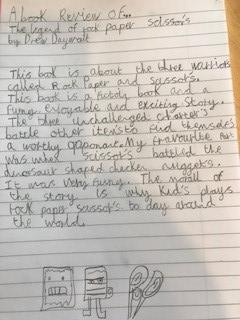 A book Review Of...
The legend of rock paper scissors
by Drew Daywalt
This book is about the three warriors
called Rock Paper and Scissors.
This book is a fictoly book and a
funny, enjoyable and exciting Story.
The three unchallenged charter's
battle other items to find themselves
a worthy opponant. My favourite Part
was when scissor's battled the
dinosaur shaped chicken nuggets.
It was very funny. The morall of
the story is why kid's plays
rock paper scissor's to day around
the world.